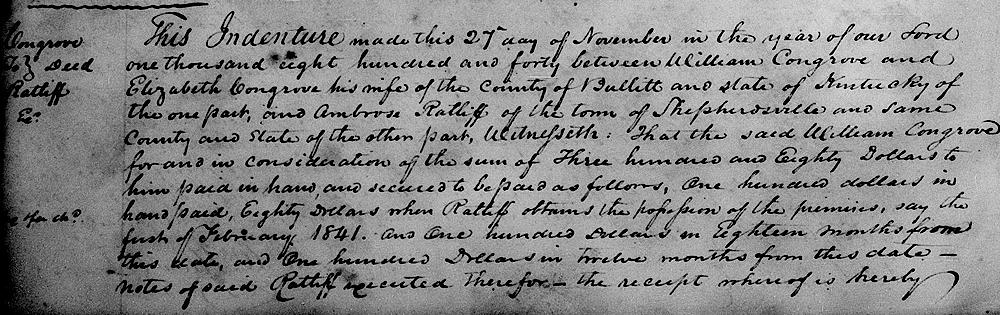 Congrove
To } Deed
Ratliff
Ec.
This Indenture made this 27 day of November in the year of our Lord
one thousand eight hundred and forty between William Congrove and
Elizabeth Congrove his wife of the County of Bullitt and state of Kentucky of
the one part, and Ambrose Ratliff of the town of Shepherdsville and same
County and State of the other part, Witnesseth: That the said William Congrove
for and in consideration of the sum of Three hundred and Eighty Dollars to
him paid in hand, and secured to be paid as follows, One hundred dollars in
hand paid, Eighty Dollars when Ratliff obtains the possession of the premises, say the
first of February 1841. and One hundred Dollars in Eighteen months from
this date, and One hundred Dollars in twelve months from this date —
notes of said Ratliff executed therefor — the receipt whereof is hereby